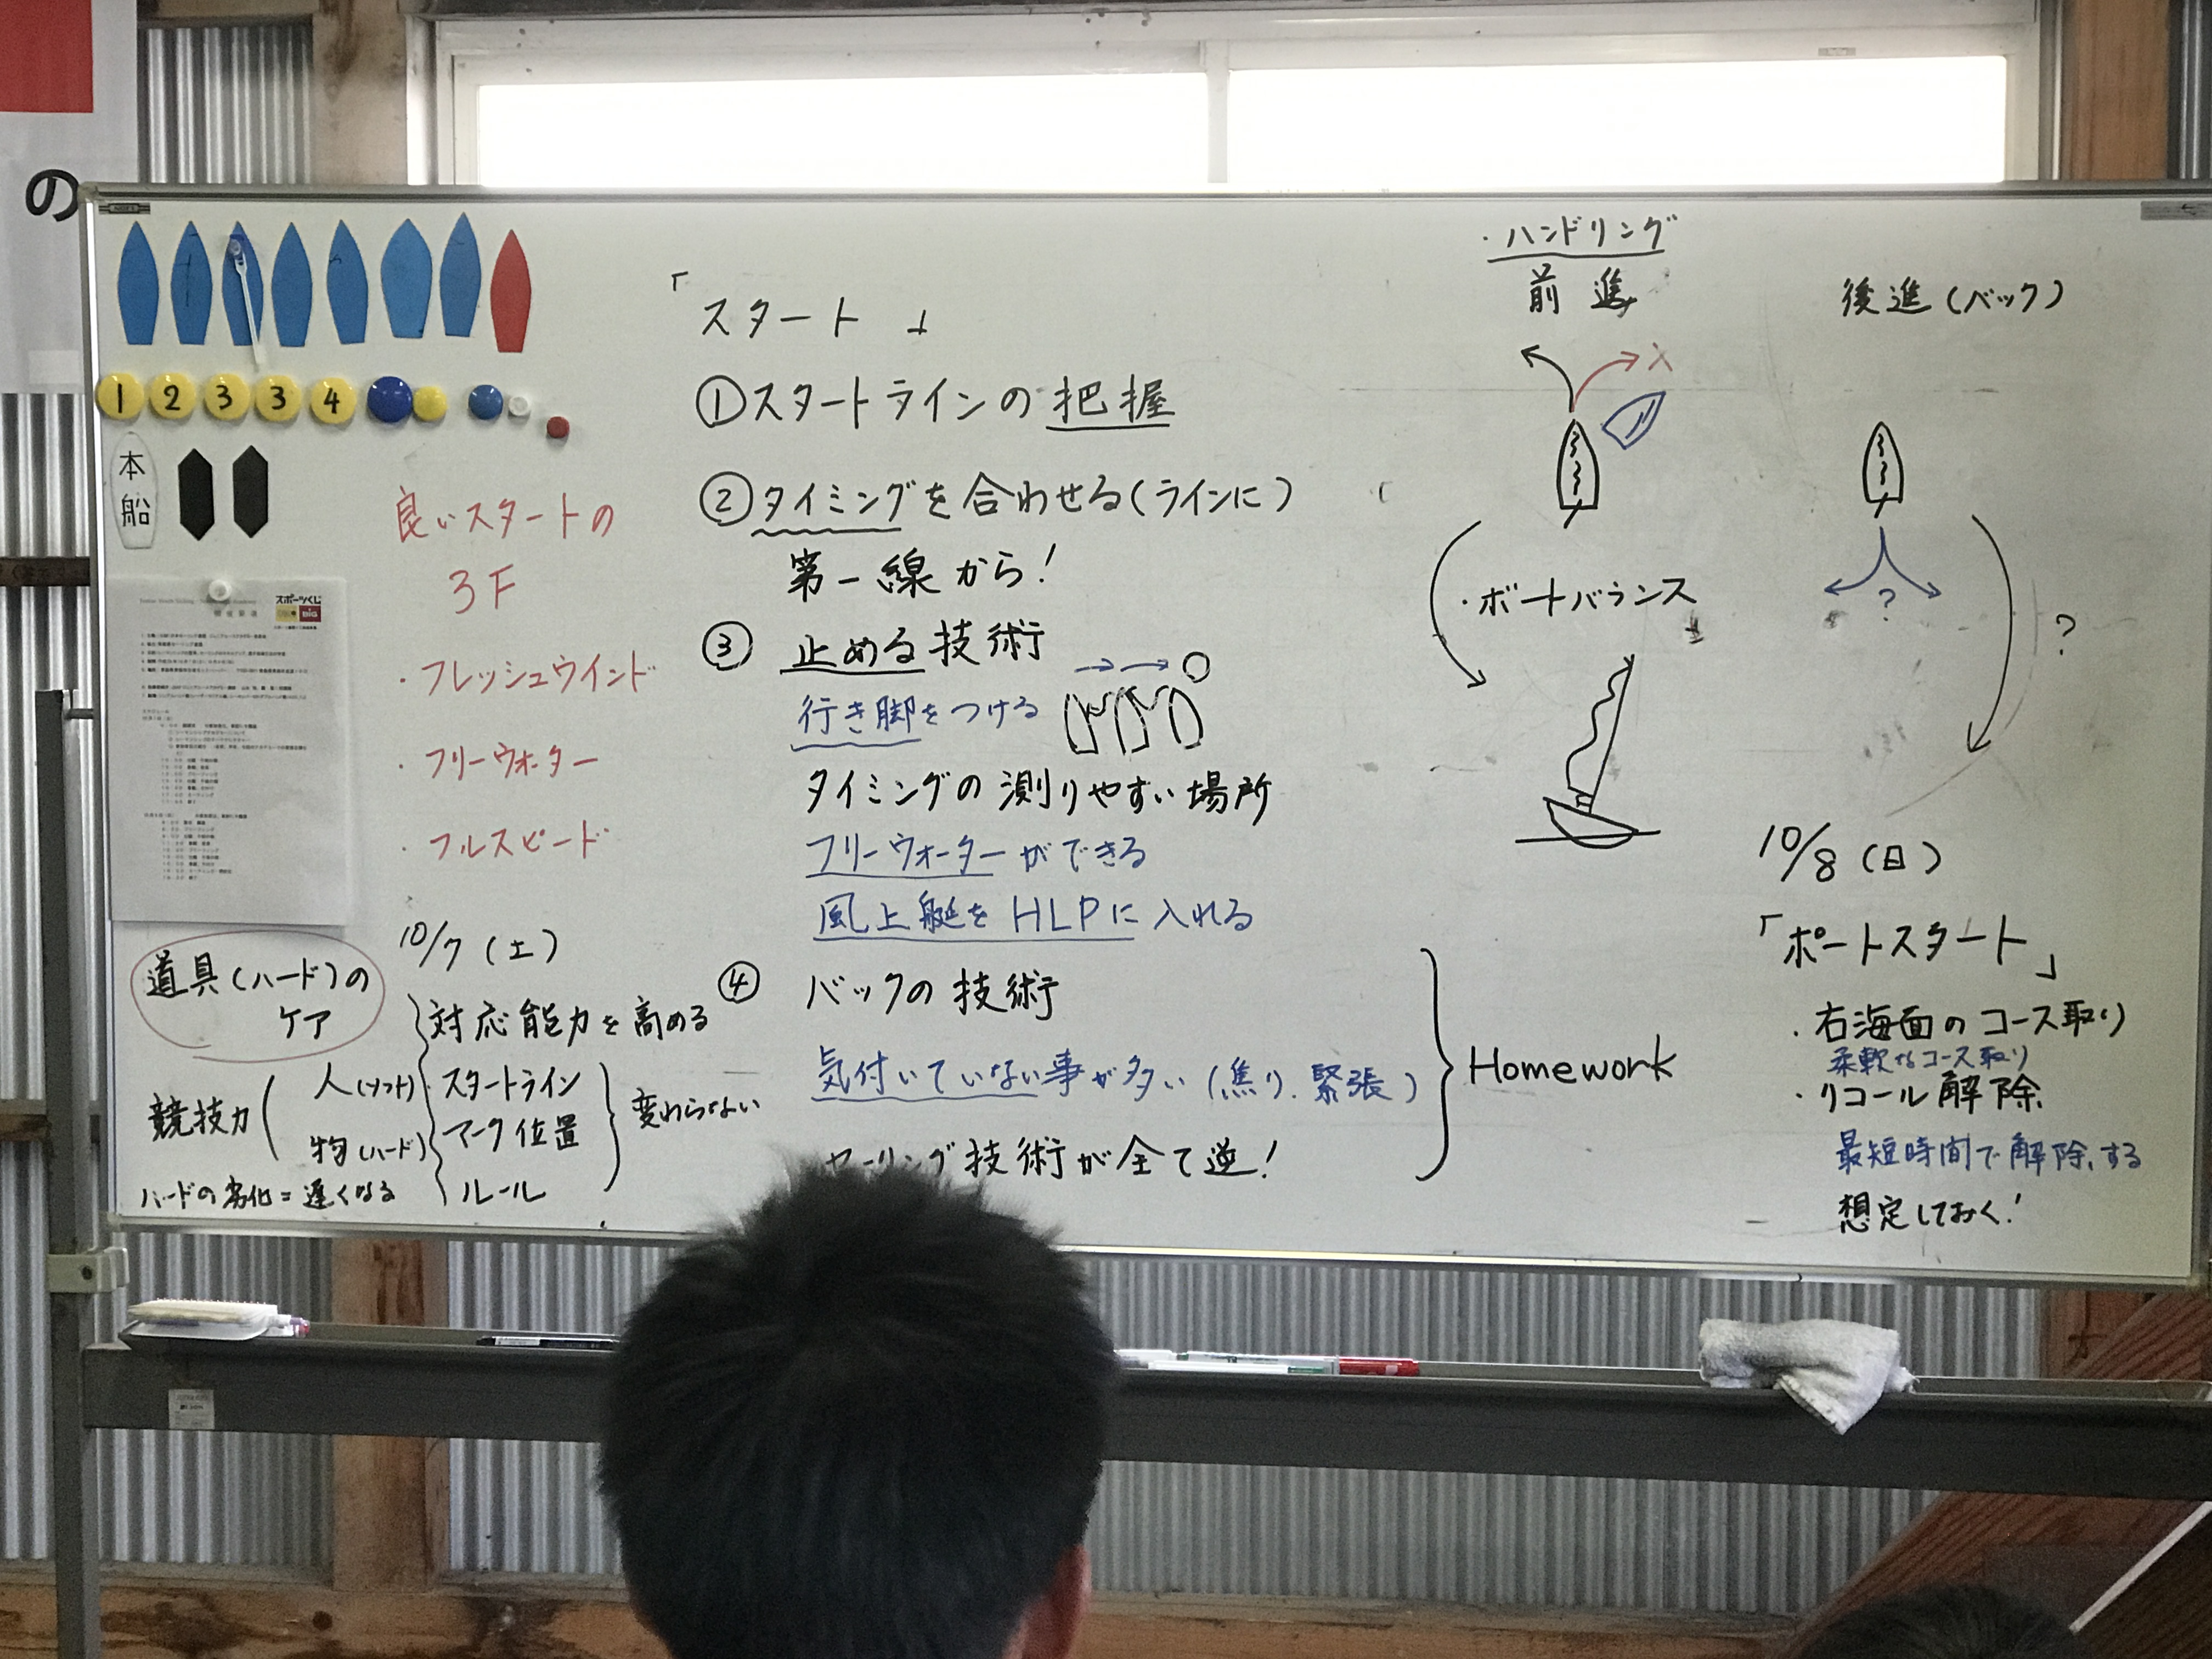 の
1 2 3 3 4
本船
スポーツくじ
BIG
良いスタートの
3F
・フレッシュウインド
・フリーウォーター
・フルスピード
道具(ハード)の
ケア
競技力
人(ソフト)
物(ハード)
ハードの劣化=遅くなる
10/7(土)
対応能力を高める
・スタートライン
マーク位置
ルール
変わらない
「スタート」
①スタートラインの把握
②タイミングを合わせる(ラインに)
第一線から!
③止める技術
行き脚をつける
タイミングの測りやすい場所
フリーウォーターができる
風上艇をHLPに入れる
④バックの技術
気付いていない事が多い(焦り、緊張)
セーリング技術が全て逆!
Homework
・ハンドリング
前進
後進(バック)
・ボートバランス
?
?
10/8(日)
「ポートスタート」
・右海面のコース取り
柔軟なコース取り
・リコール解除
最短時間で解除する
想定しておく!